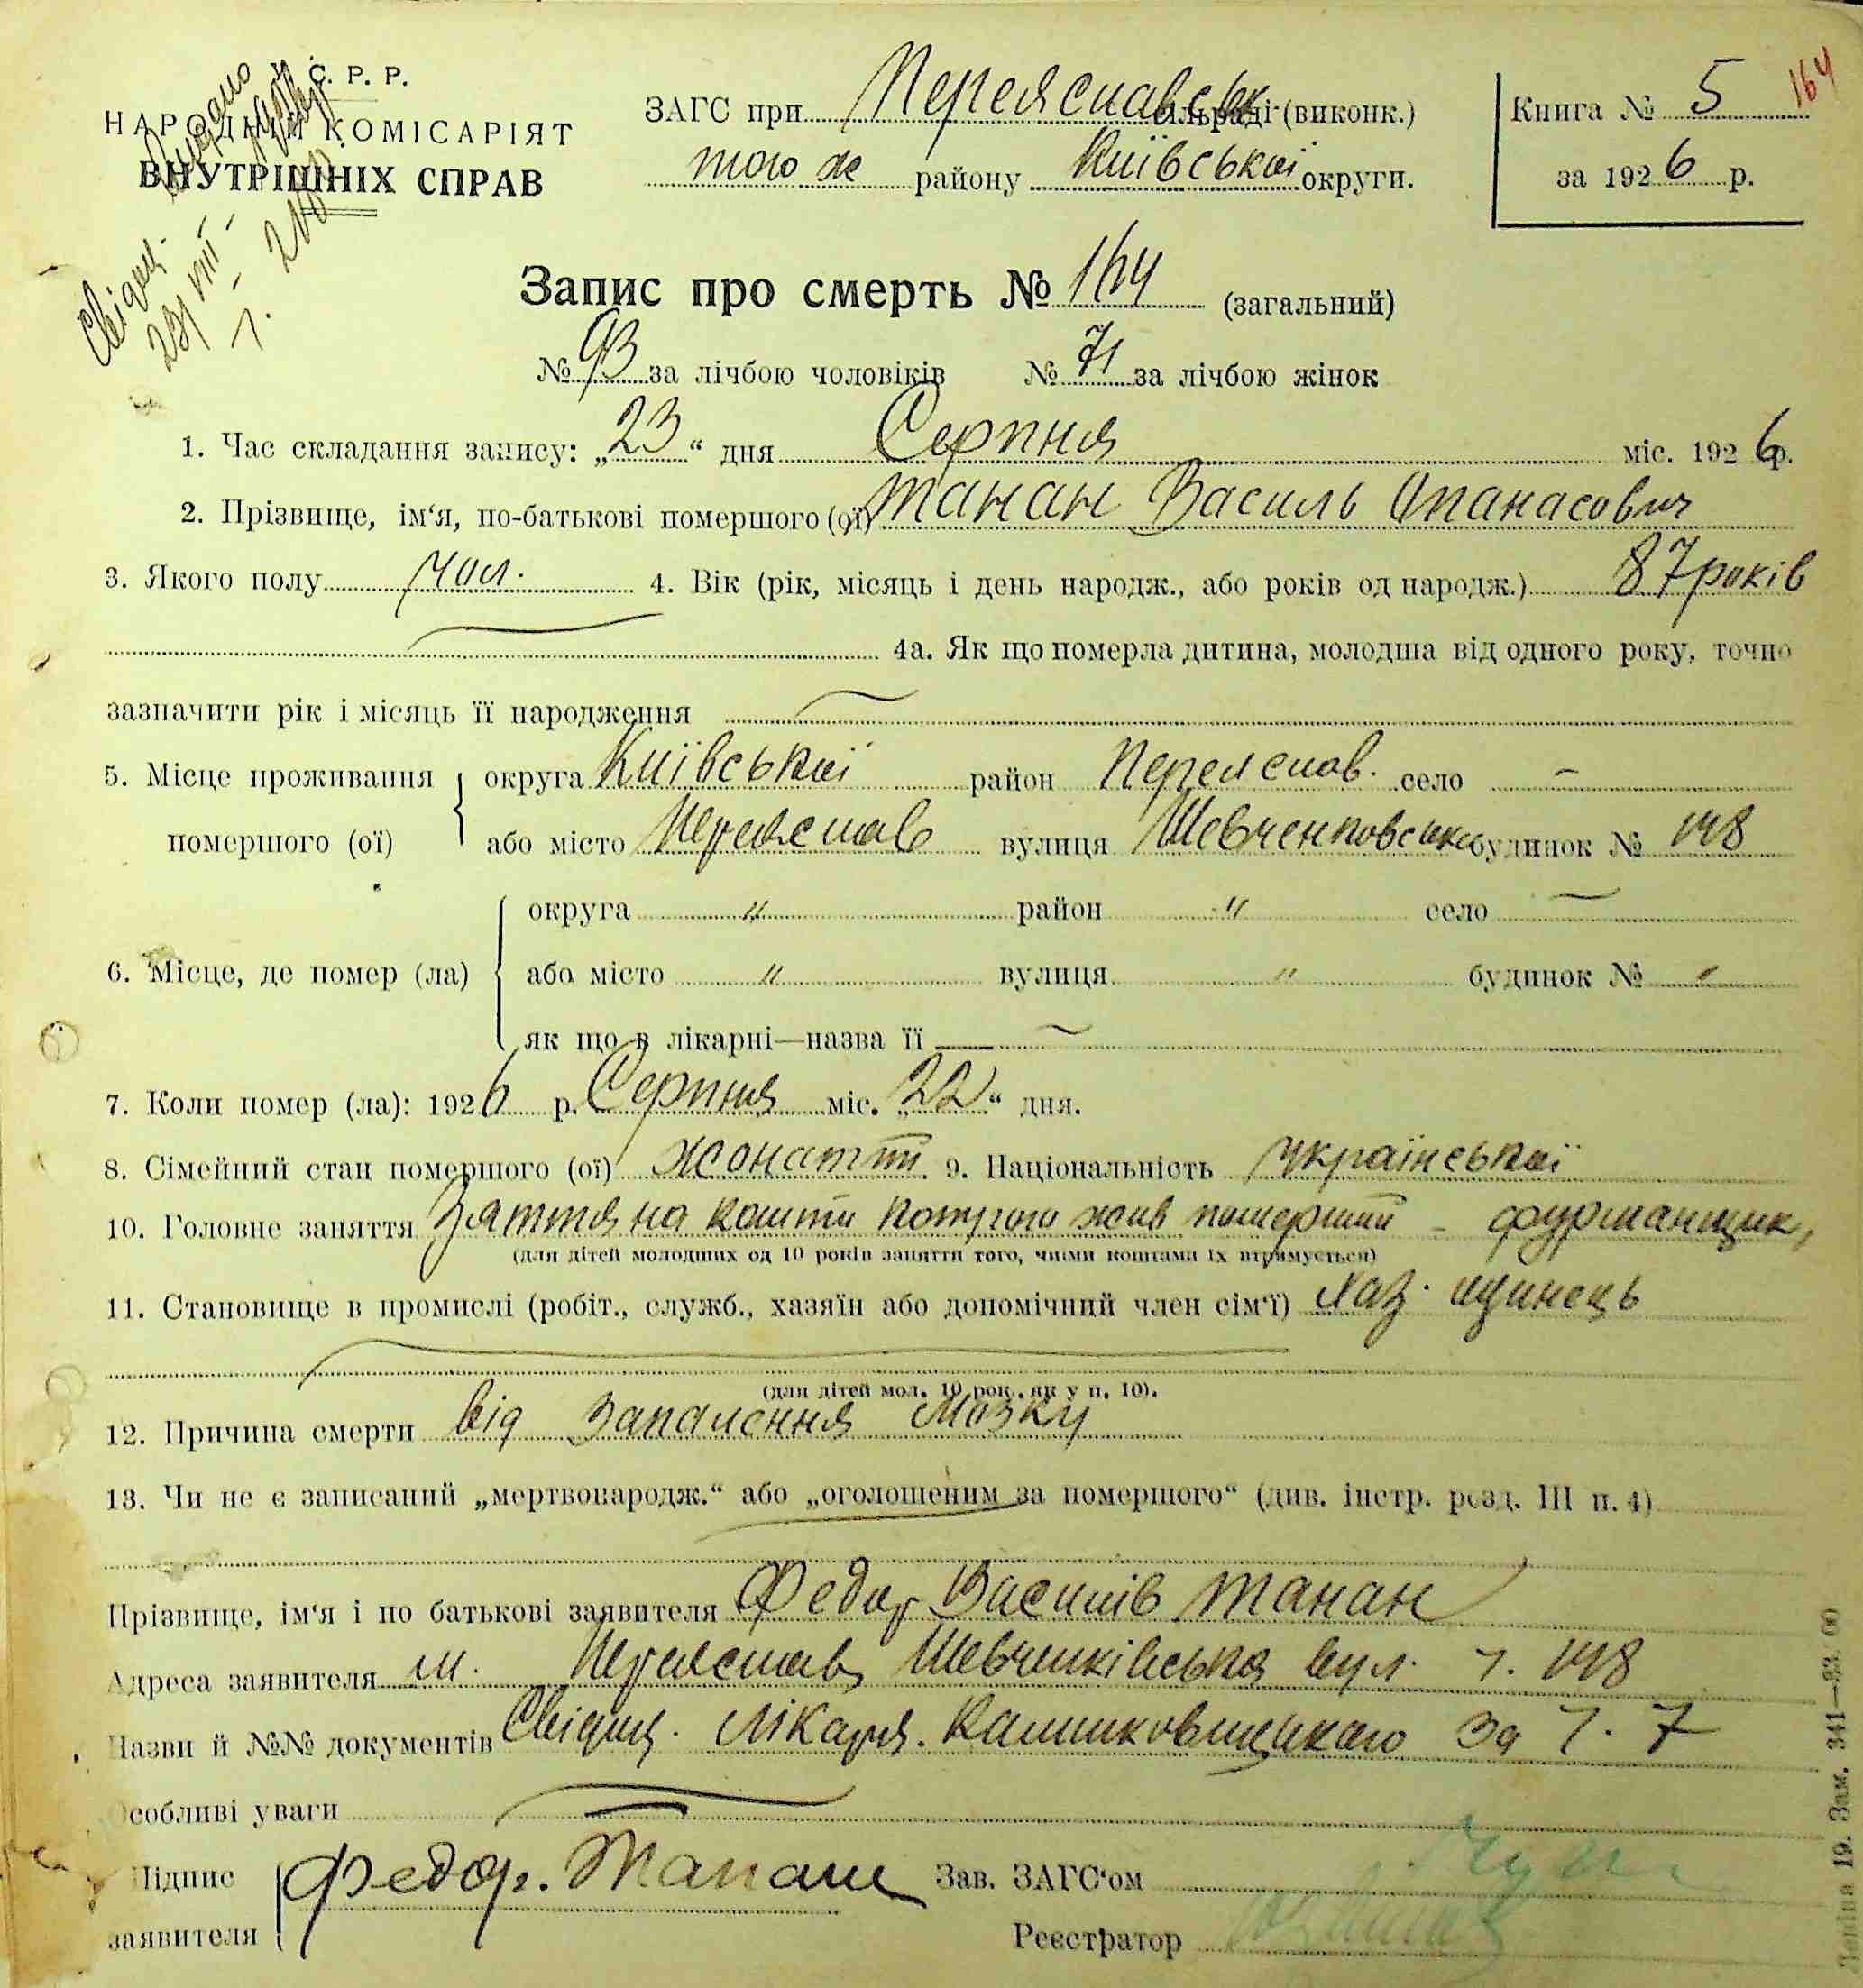 У. С. Р. Р.
НАРОДНІЙ КОМІСАРІЯТ
ВНУТРІШНІХ СПРАВ
Видано
Свідоц.
23/VIII-
ЗАГС при Переяславськ ільраді (виконк.)
того же району Київської округи.
Книга № 5
164
за 1926 р.
Запис про смерть № 164 (загальний)
№ 93 за лічбою чоловіків № 71 за лічбою жінок
1. Час складання запису: „23“ дня Серпня міс. 1926 р.
2. Прізвище, ім‘я, по-батькові помершого (ої) Танан Василь Опанасович
3. Якого полу чол. 4. Вік (рік, місяць і день народж., або років од народж.) 87 років
4а. Як що померла дитина, молодша від одного року, точно
зазначити рік і місяць її народження
5. Місце проживання помершого (ої) округа Київської район Переяслав. село —
або місто Переяслав вулиця Шевченковськ будинок № 148
6. Місце, де помер (ла) округа " район " село —
або місто " вулиця " будинок № "
як що в лікарні—назва її —
7. Коли помер (ла): 1926 р. Серпня міс. „22“ дня.
8. Сімейний стан помершого (ої) жонатий 9. Національність української
10. Головне заняття Заяття на кошти которого жив померший - фурманщик,
(для дітей молодших од 10 років заняття того, чиїми коштами їх втримується)
11. Становище в промислі (робіт., служб., хазяїн або допомічний член сім‘ї) Хаз. одинець
(для дітей мол. 10 рок. як у п. 10).
12. Причина смерти від запалення мозку
13. Чи не є записаний „мертвонародж.“ або „оголошеним за помершого“ (див. інстр. розд. III п. 4)
Прізвище, ім‘я і по батькові заявителя Федор Василів Танан
Адреса заявителя м. Переяслав, Шевченківська вул. ч. 148
Назви й №№ документів Свідоц. лікаря. за ч. 7
Особливі уваги
Підпис заявителя Федор. Танан Зав. ЗАГС‘ом
Реєстратор
19. Зам. 341—33.00